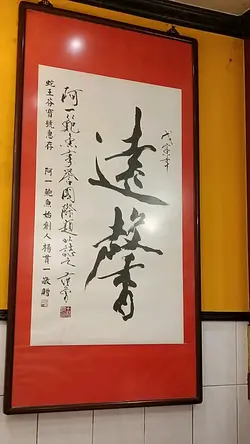 戊寅年
遠馨
阿一鮑魚享譽國際題以誌之
蛇王芬寶號惠存 阿一鮑魚始創人楊貫一敬贈